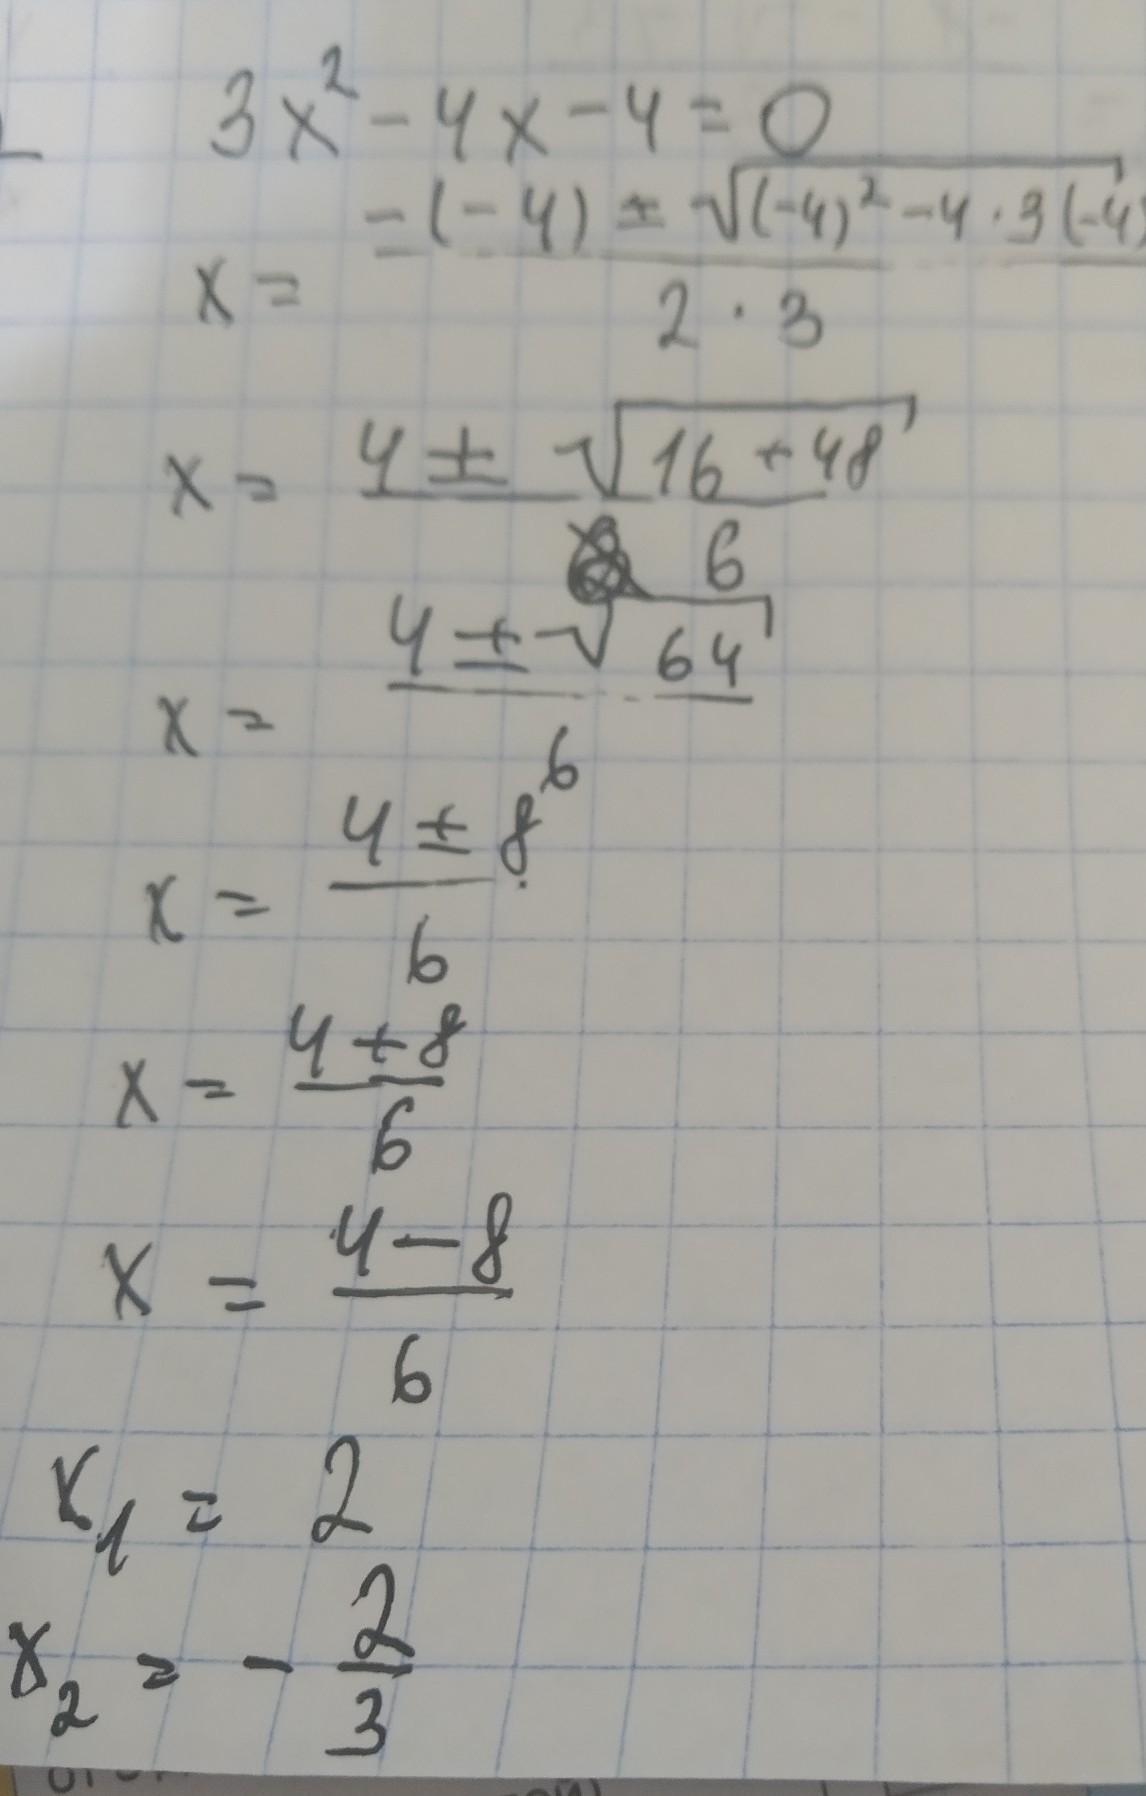 3x² - 4x - 4 = 0
x = (-(-4) ± √((-4)² - 4 · 3(-4))) / (2 · 3)
x = (4 ± √(16 + 48)) / 6
x = (4 ± √64) / 6
x = (4 ± 8) / 6
x = (4 + 8) / 6
x = (4 - 8) / 6
x₁ = 2
x₂ = - 2/3